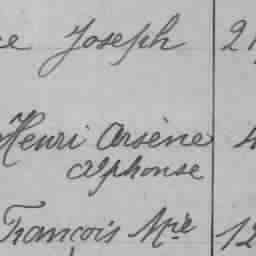 Joseph 2
Henri Arsène 4
Alphonse
François Mie 12